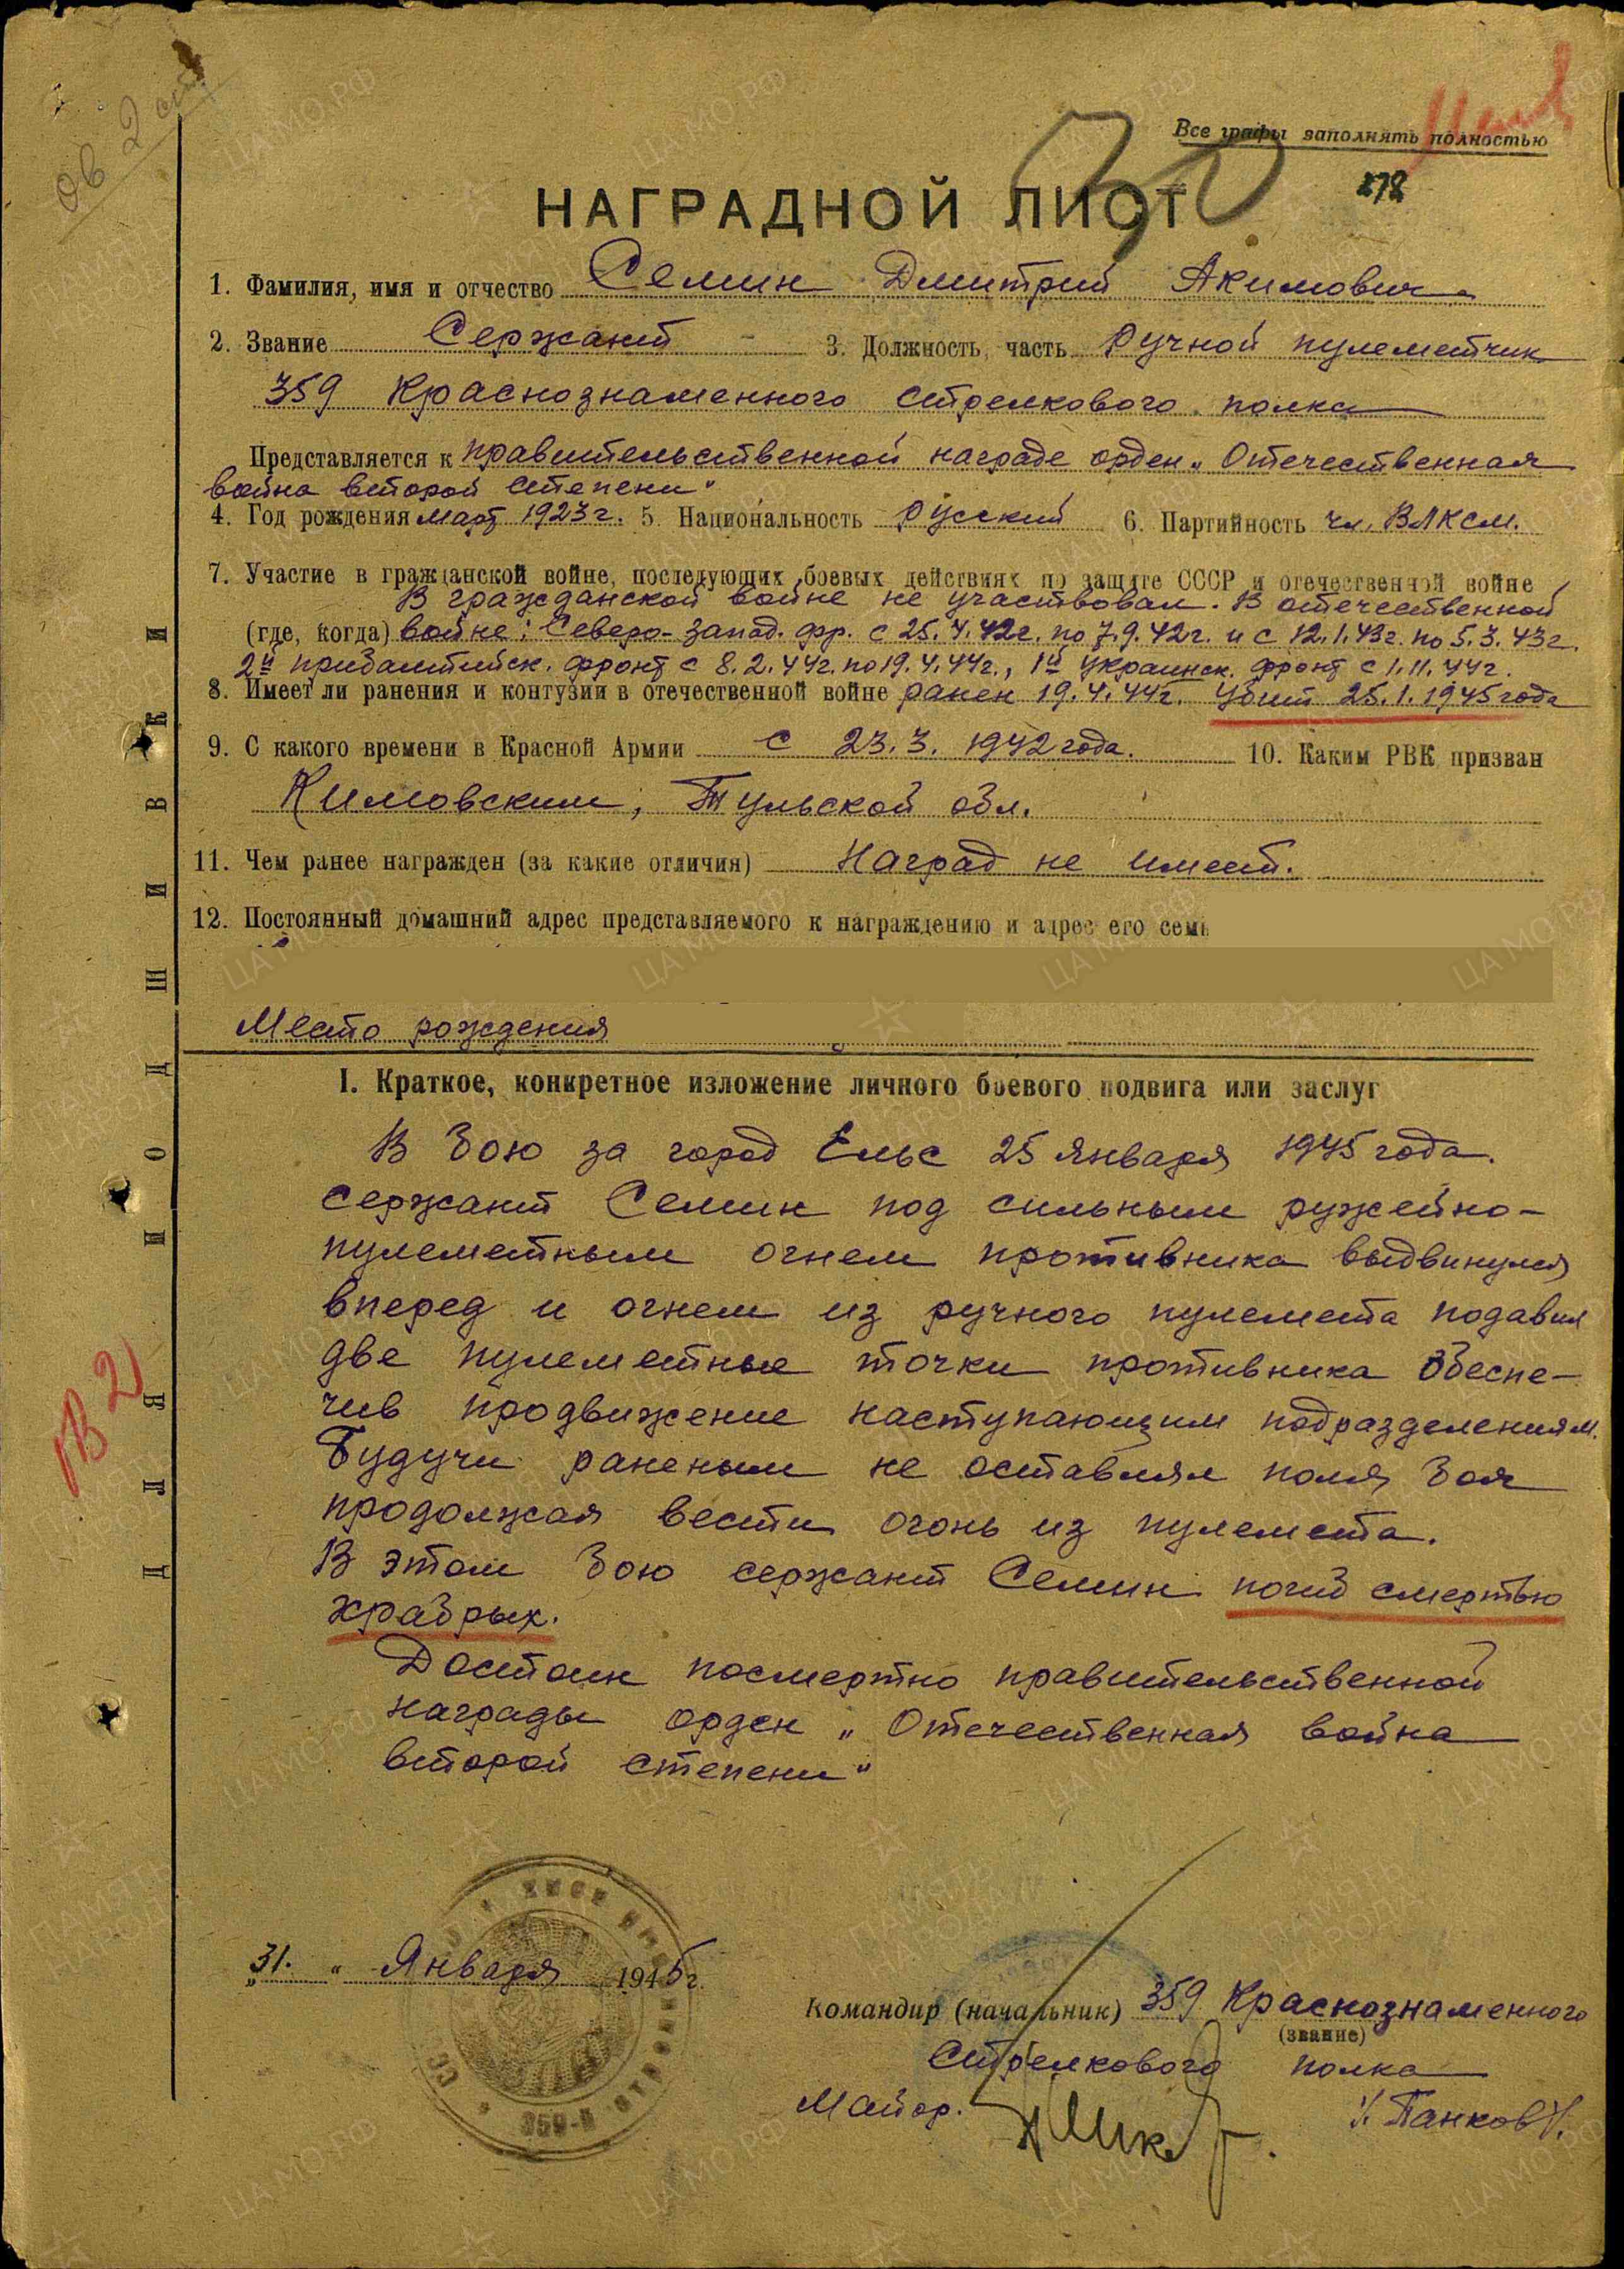 ов 2 ст
Все графы заполнять полностью
30
278
НАГРАДНОЙ ЛИСТ
1. Фамилия, имя и отчество Семин Дмитрий Акимович
2. Звание Сержант 3. Должность, часть Ручной пулеметчик
359 Краснознаменного стрелкового полка
Представляется к правительственной награде орден „Отечественная
война второй степени"
4. Год рождения март 1923 г. 5. Национальность русский 6. Партийность чл. ВЛКСМ.
7. Участие в гражданской войне, последующих боевых действиях по защите СССР и отечественной войне
В гражданской войне не участвовал. В отечественной
(где, когда) войне: Северо-запад. фр. с 25.4.42г. по 7.9.42г. и с 12.1.43г. по 5.3.43г.
2й прибалтийск. фронт с 8.2.44г. по 19.4.44г., 1й украинск. фронт с 1.11.44г.
8. Имеет ли ранения и контузии в отечественной войне ранен 19.4.44г. Убит 25.1.1945 года
9. С какого времени в Красной Армии с 23.3.1942 года. 10. Каким РВК призван
Кимовским, Тульской обл.
11. Чем ранее награжден (за какие отличия) Наград не имеет.
12. Постоянный домашний адрес представляемого к награждению и адрес его семь
Место рождения
I. Краткое, конкретное изложение личного боевого подвига или заслуг
В бою за город Ельс 25 января 1945 года.
сержант Семин под сильным ружейно-
пулеметным огнем противника выдвинулся
вперед и огнем из ручного пулемета подавил
две пулеметные точки противника обеспе-
чив продвижение наступающим подразделениям.
Будучи раненым не оставлял поля боя
продолжая вести огонь из пулемета.
В этом бою сержант Семин погиб смертью
храбрых.
Достоин посмертно правительственной
награды орден „Отечественная война
второй степени"
„31." Января 1945 г.
Командир (начальник) 359 Краснознаменного
(звание)
Стрелкового полка
Майор. /Панков/.
359-й
ДЛЯ ПОДШИВКИ
ОВ 2
ЦАМО.РФ
ПАМЯТЬ НАРОДА